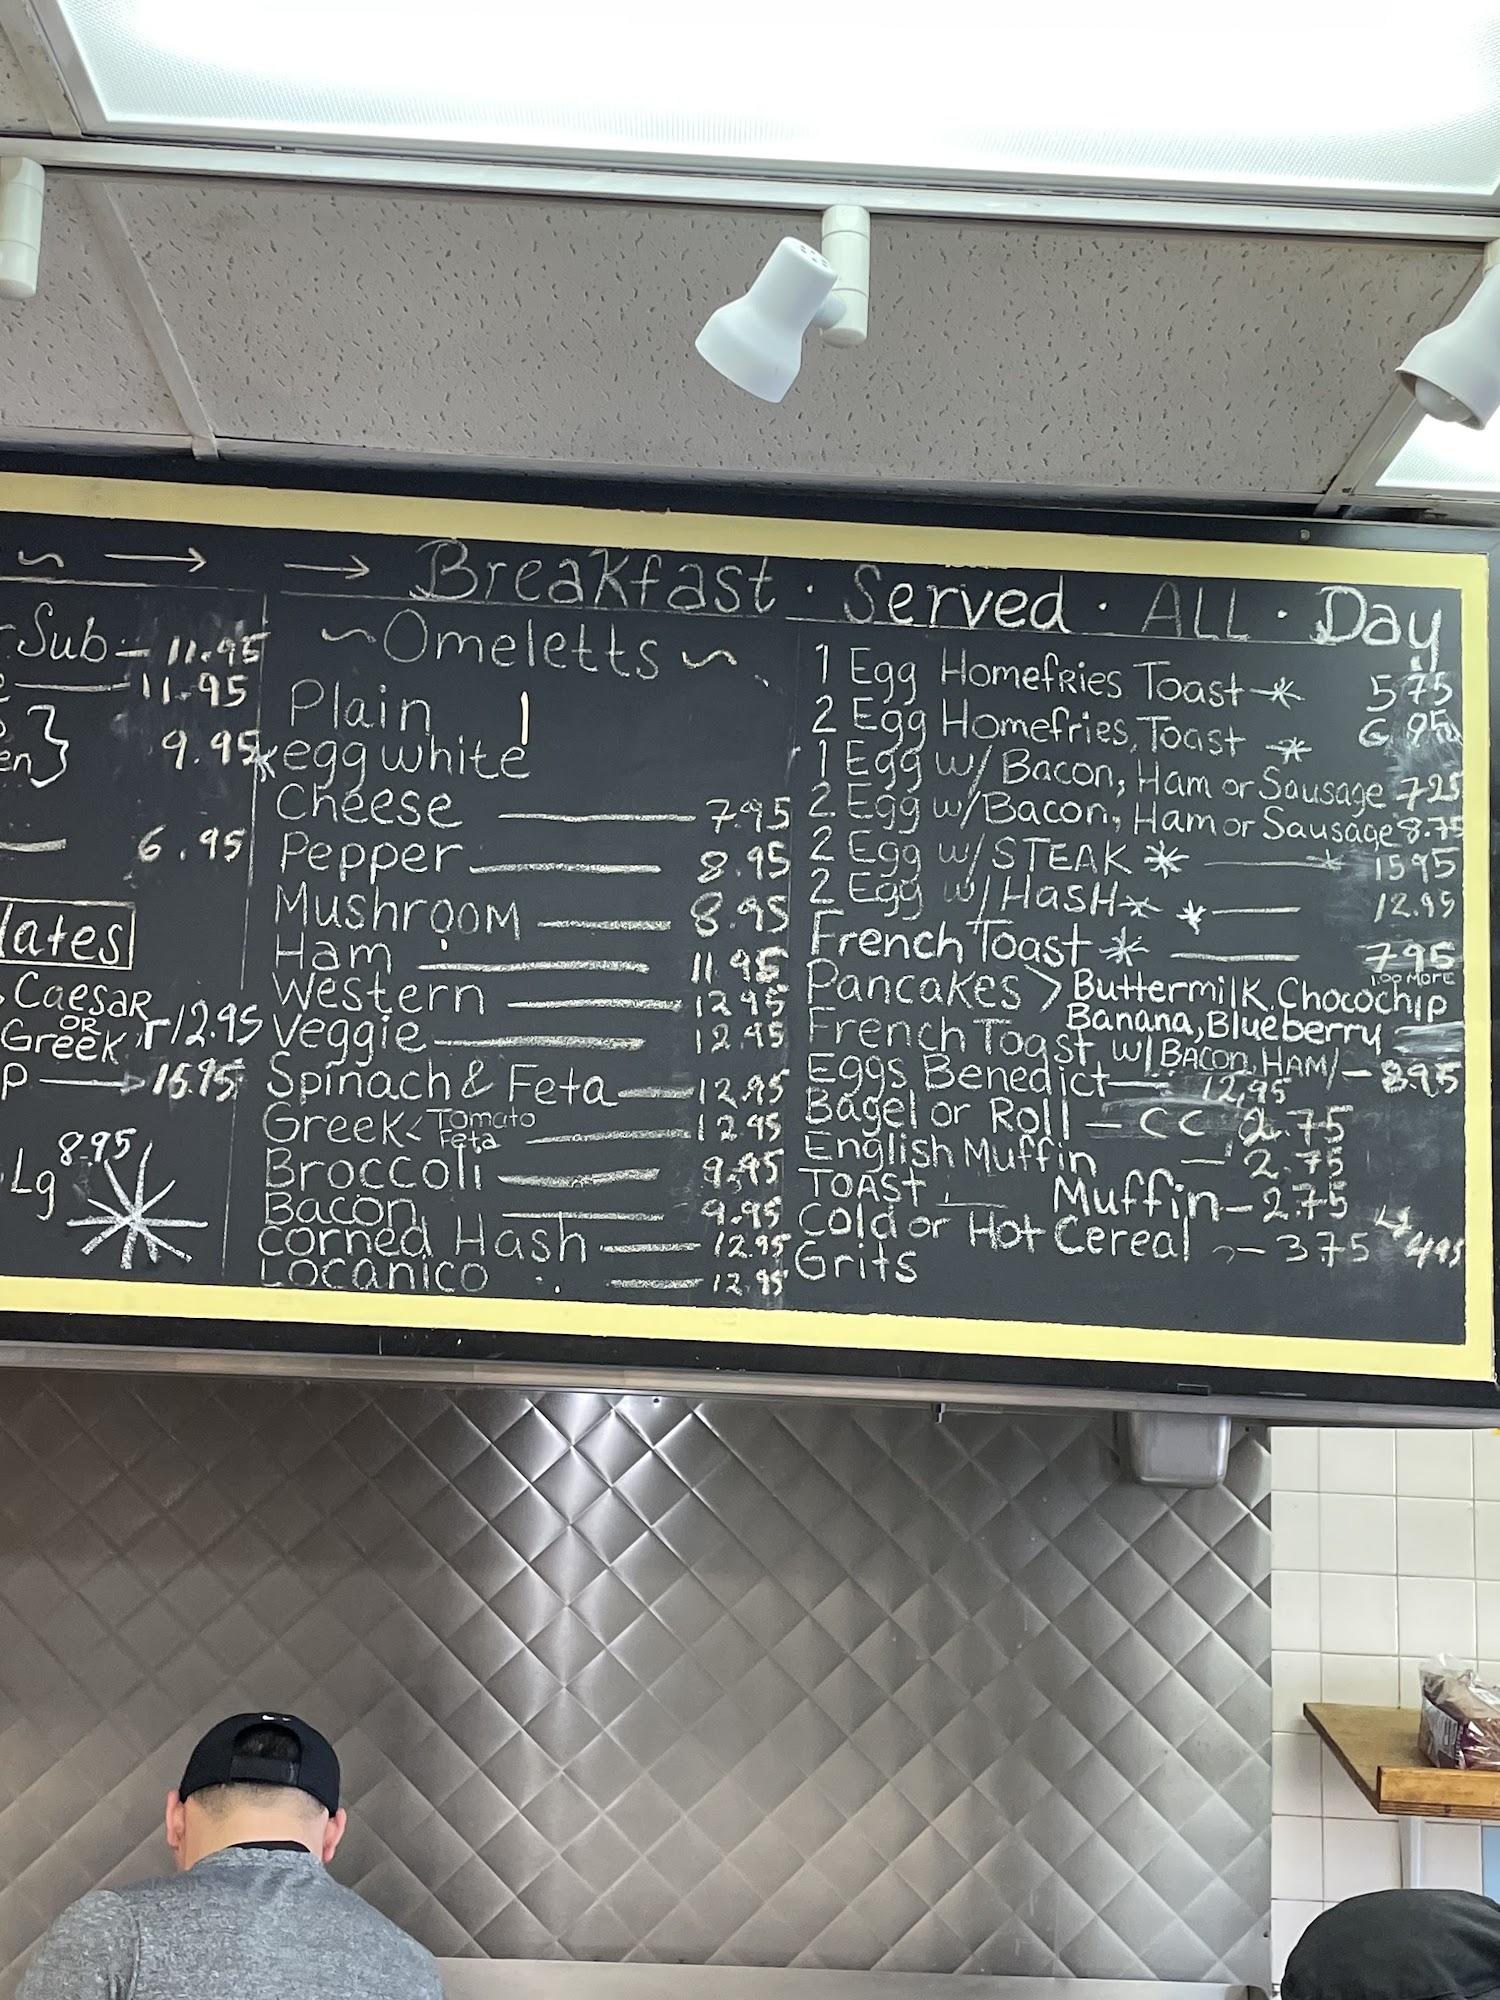 Breakfast · Served · ALL · Day
Sub - 11.95
11.95
9.95
6.95
lates
Caesar
OR
Greek
12.95
P 15.95
Lg 8.95
~Omeletts~
Plain
*egg white
Cheese 7.95
Pepper 8.95
Mushroom 8.95
Ham 11.95
Western 12.95
Veggie 12.95
Spinach & Feta 12.95
Greek < Tomato Feta 12.95
Broccoli 9.95
Bacon 9.95
Corned Hash 12.95
Locanico 12.95
1 Egg Homefries Toast * 5.75
2 Egg Homefries, Toast * 6.95
1 Egg w/ Bacon, Ham or Sausage 7.25
2 Egg w/ Bacon, Ham or Sausage 8.75
2 Egg w/ STEAK * 15.95
2 Egg w/ HaSH * * 12.95
French Toast * 7.95
1.00 MORE
Pancakes > Buttermilk, Chocochip
Banana, Blueberry
French Toast w/ BACON, HAM/ - 8.95
Eggs Benedict 12.95
Bagel or Roll - CC 2.75
English Muffin - 2.75
TOAST Muffin - 2.75
Cold or Hot Cereal - 3.75 4.95
Grits